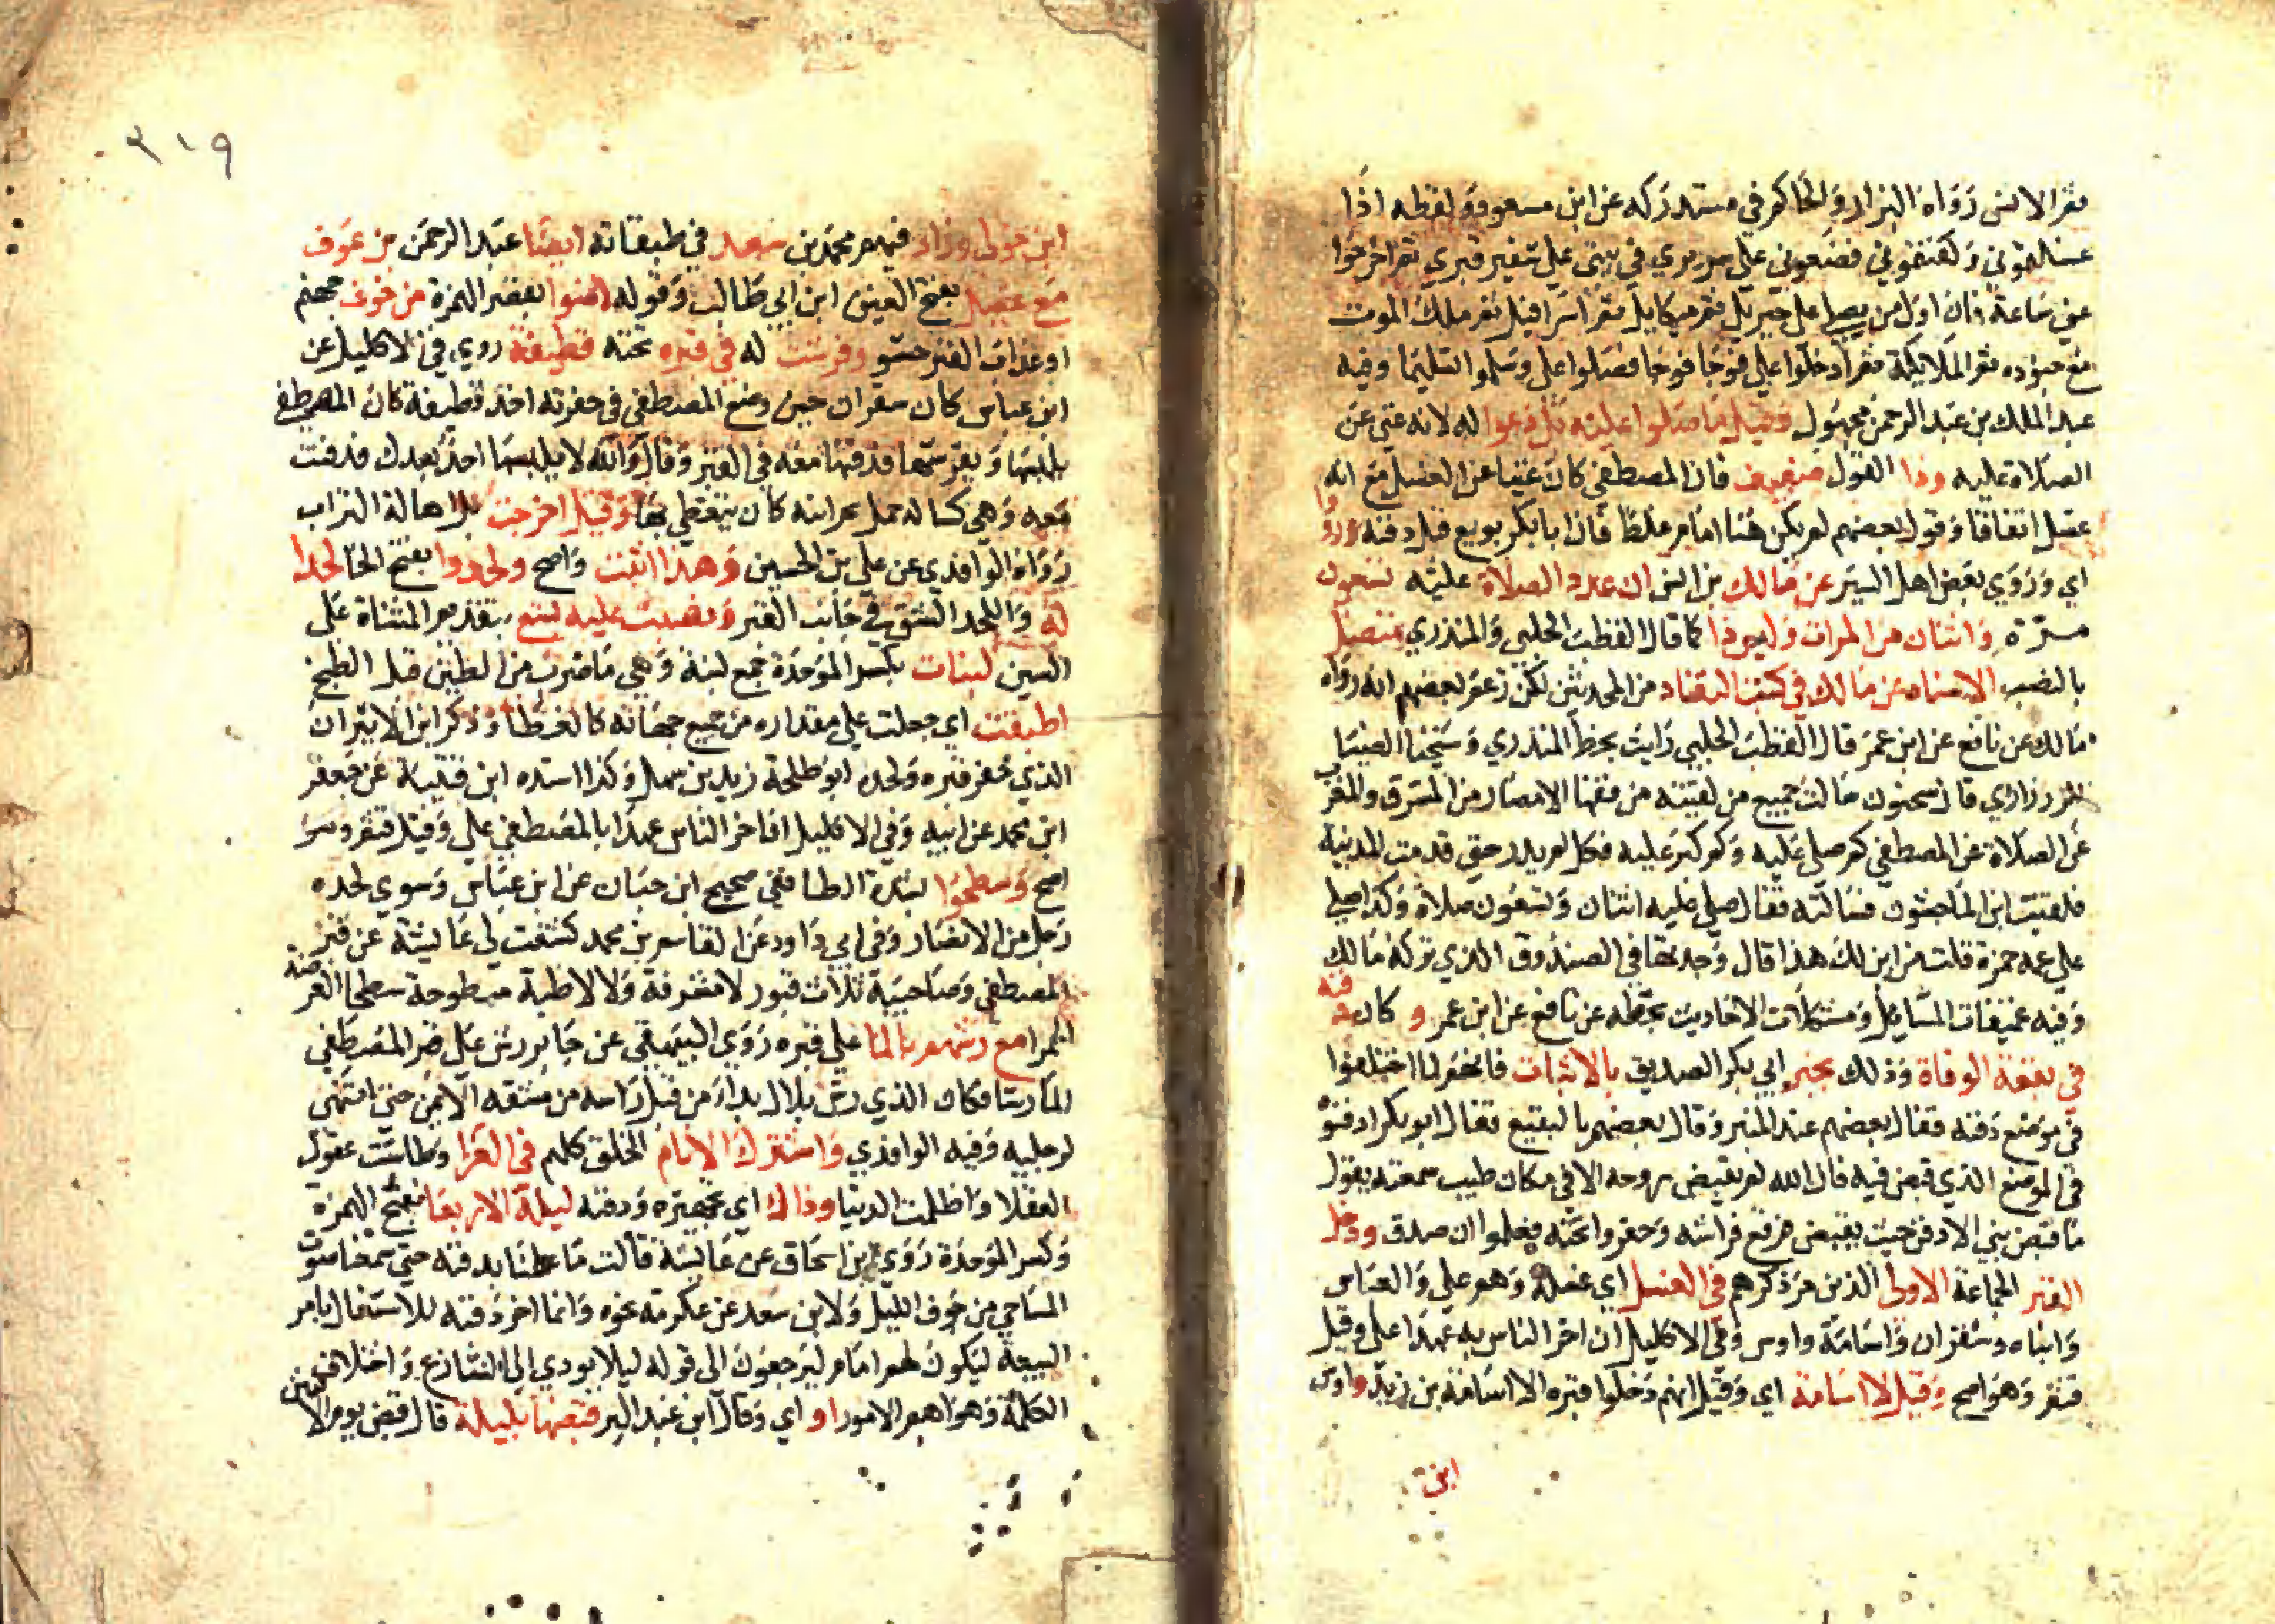 ثم الانس رواه البزار والحاكم في مستدركه عن ابن مسعود ولفظه اذا
غسلتموني وكفنتموني فضعوني على سريري في بيتي على شفير قبري ثم اخرجوا
عني ساعة فان اول من يصلي علي جبريل ثم ميكايل ثم اسرافيل ثم ملك الموت
مع جنوده ثم الملايكة ثم ادخلوا علي فوجا فوجا فصلوا علي وسلموا تسليما وفيه
عبد الملك بن عبد الرحمن مجهول وقيل ما صلوا عليه بل دعوا له لانه غني عن
الصلاة عليه وذا القول ضعيف فان المصطفى كان غنيا عن الغسل مع انه
غسل اتفاقا وقول بعضهم لم يكن هنا امام غلط فان ابا بكر بويع قبل دفنه ورووا
اي وروي بعض اهل السير عن مالك بن انس ان عدد الصلاة عليه تسعون
مرة واثنان من المرات وليس ذا كما قال القطب الحلبي والمنذري متصل
بالنصب الاسناد عن مالك في كتب النقاد من المحدثين لكن زعم بعضهم انه رواه
مالك عن نافع عن ابن عمر قال القطب الحلبي رايت بخط المنذري وشيخنا الضيا
الزرزاري قال سحنون سالت جميع من لقيته من فقها الامصار من المشرق والمغرب
عن الصلاة عن المصطفى كم صلي عليه وكم كبر عليه فكل لم يدر حتى قدمت المدينة
فلقيت ابن الماجشون فسالته فقال صلي عليه اثنان وتسعون صلاة وكذا صلي
على عمه حمزة قلت من اين لك هذا قال وجدتها في الصندوق الذي تركه مالك
وفيه عميقات المسايل ومشكلات الاحاديث بخطه عن نافع عن ابن عمر وكان دفنه
في بقعة الوفاة وذلك بخبر ابي بكر الصديق بالاثبات فانهم لما اختلفوا
في موضع دفنه فقال بعضهم عند المنبر وقال بعضهم بالبقيع فقال ابو بكر ادفنوه
في الموضع الذي قبض فيه فان الله لم يقبض روحه الا في مكان طيب سمعته يقول
ما قبض نبي الا دفن حيث يقبض فرفع فراشه وحفروا تحته فعلموا ان صدق ودخل
القبر الجماعة الاولى الذين مر ذكرهم في الغسل اي غسله وهم علي والعباس
وابناه وشقران واسامة واوس وفي الاكليل ان اخر الناس به عهدا علي وقيل
قثم وهو اصح وقيل لا اسامة اي وقيل انهم دخلوا قبره الا اسامة بن زيد واوس
ابن
٣١٩
ابن خولي وزاد فيهم محمد بن سعد في طبقاته ايضا عبد الرحمن بن عوف
مع عقيل بفتح العين ابن ابي طالب وقوله امنوا بقصر الهمزة من خوف جهنم
او عذاب القبر حشو وفرشت له في قبره تحته قطيفة روي في الاكليل عن
ابن عباس كان شقران حين وضع المصطفى في حفرته اخذ قطيفة كان المصطفى
يلبسها ويفترشها فدفنها معه في القبر وقال والله لا يلبسها احد بعدك فدفنت
معه وهي كسا له خمل كان يتغطى بها وقيل اخرجت بل اهالة التراب
رواه الواقدي عن علي بن الحسين وهذا اثبت واصح ولحدوا بفتح الحا لحدا
له واللحد الشق في جانب القبر ونصبت عليه تسع بتقديم المثناة على
السين لبنات بكسر الموحدة جمع لبنة وهي ما ضرب من الطين قبل الطبخ
اطبقت اي جعلت على مقداره من جميع جهاته كالغطا وذكر ابن الاثير ان
الذي حفر قبره ولحده ابو طلحة زيد بن سهل وكذا اسنده ابن قتيبة عن جعفر
ابن محمد عن ابيه وفي الاكليل ان اخر الناس عهدا بالمصطفى علي وقيل قثم ومر
اصح وسطحوا بشدة الطا ففي صحيح ابن حبان عن ابن عباس وسوي لحده
رجل من الانصار وفي ابي داود عن القاسم بن محمد كشفت لي عايشة عن قبر
المصطفى وصاحبيه ثلاث قبور لا مشرفة ولا لاطية مبطوحة ببطحا العرصة
الحمرا مع رشهم بالما على قبره روي البيهقي عن جابر رش على قبر المصطفى
الما رشا وكان الذي رش بلال بداء من قبل راسه من شقه الايمن حتى انتهى
لرجليه وفيه الواقدي واشترك الانام الخلق كلهم في العزا وطاشت عقول
العقلا واظلمت الدنيا وذاك اي تجهيزه ودفنه ليلة الاربعا بفتح الهمزة
وكسر الموحدة روي ابن اسحاق عن عايشة قالت ما علمنا بدفنه حتى سمعنا صوت
المساحي من جوف الليل ولابن سعد عن عكرمة نحوه وانما اخر دفنه للاشتغال بامر
البيعة ليكون لهم امام ليرجعون الى قوله ليلا يودي الى التنازع واختلاف
الكلمة وهو اهم الامور او اي وقال ابن عبد البر قبضها بليلة قال قبض يوم الاثنين